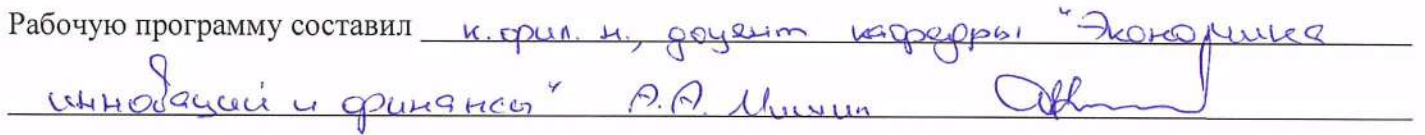 Рабочую программу составил к.фил.н., доцент кафедры "Экономика
инноваций и финансы" А.А.